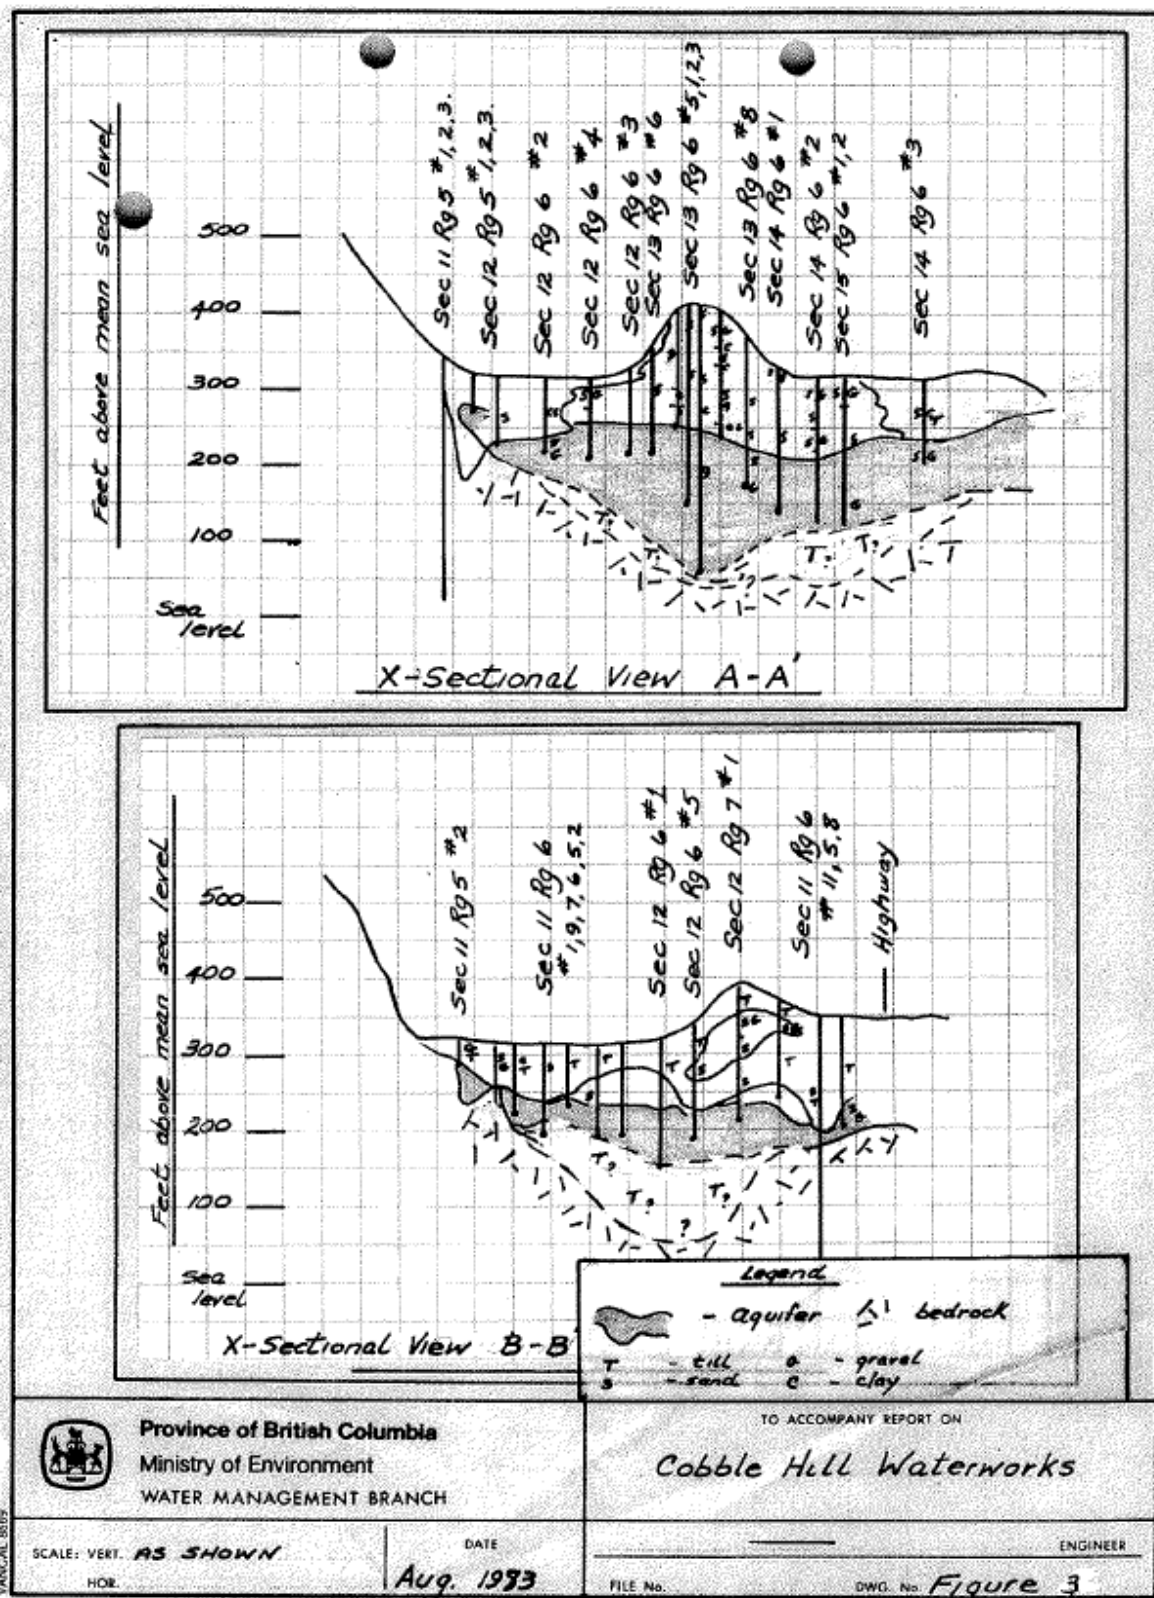 Feet above mean sea level
500
400
300
200
100
Sea level
Sec 11 Rg 5 #1,2,3.
Sec 12 Rg 5 #1,2,3.
Sec 12 Rg 6 #2
Sec 12 Rg 6 #4
Sec 12 Rg 6 #3
Sec 13 Rg 6 #6
Sec 13 Rg 6 #5,1,2,3
Sec 13 Rg 6 #8
Sec 14 Rg 6 #1
Sec 14 Rg 6 #2
Sec 15 Rg 6 #1,2
Sec 14 Rg 6 #3
T? T?
X-Sectional View A-A'
Feet above mean sea level
500
400
300
200
100
Sea level
Sec 11 Rg 5 #2
Sec 11 Rg 6
#1,9,7,6,5,2
Sec 12 Rg 6 #1
Sec 12 Rg 6 #5
Sec 12 Rg 7 #1
Sec 11 Rg 6
#11,5,8
Highway
T?
T? T?
?
X-Sectional View B-B'
Legend
- aquifer
bedrock
T - till
G - gravel
S - sand
C - clay
Province of British Columbia
Ministry of Environment
WATER MANAGEMENT BRANCH
TO ACCOMPANY REPORT ON
Cobble Hill Waterworks
SCALE: VERT. AS SHOWN
HOR.
DATE
Aug. 1983
ENGINEER
FILE No.
DWG. No. Figure 3